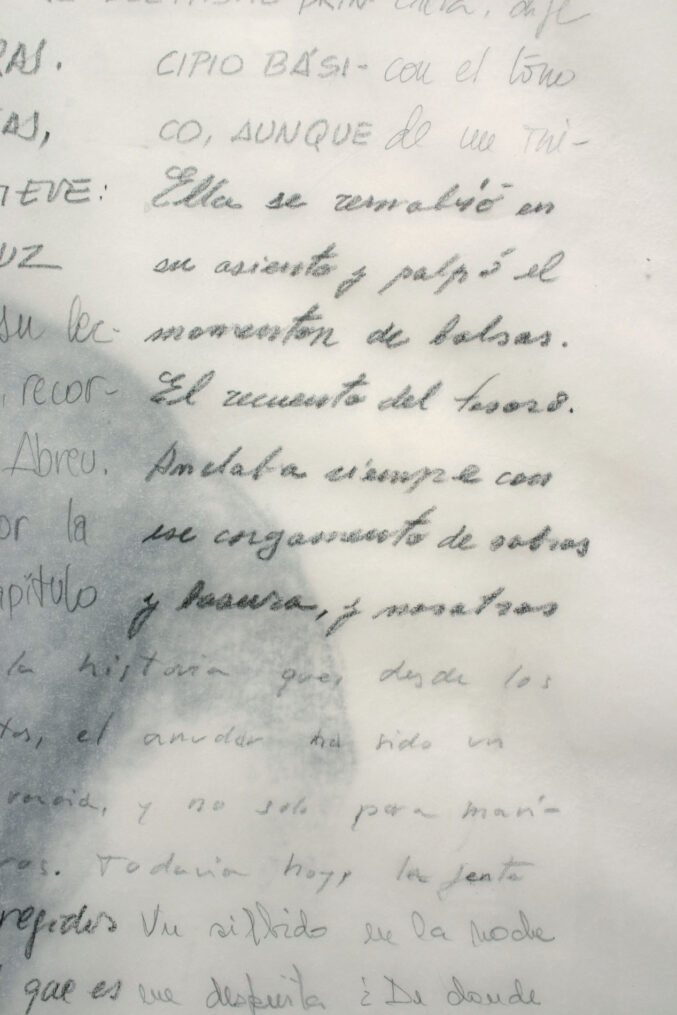 PRIN cura, dije
RAS. CIPIO BÁSI- con el tono
AS, CO, AUNQUE de un mi-
IEVE: Ella se removió en
UZ su asiento y palpó el
su lec- momenton de bolsas.
, recor- El recuento del tesoro.
Abreu. Andaba siempre con
or la ese cargamento de sobras
apítulo y basura, y nosotros
la historia que, desde los
tos, el anudar ha sido un
, y no solo para marí-
ros. Todavía hoy, la gente
regidos Un silbido en la noche
que es me despierta ¿De donde